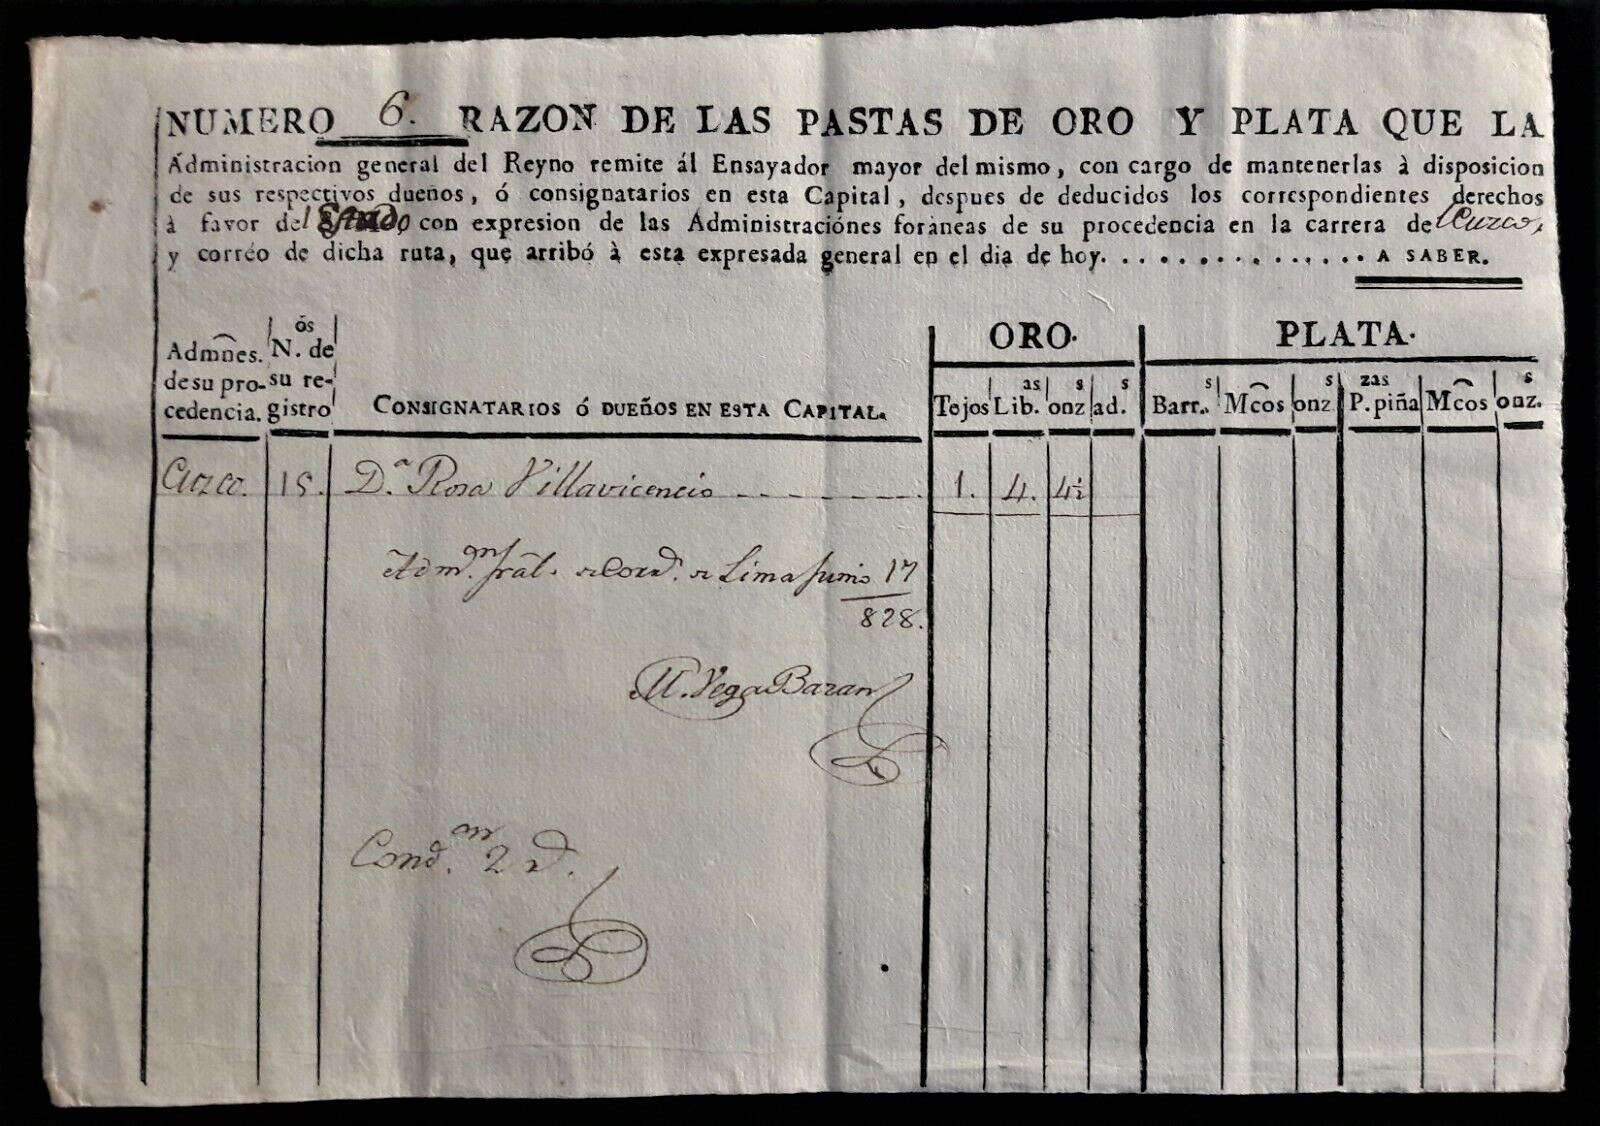 NUMERO 6. RAZON DE LAS PASTAS DE ORO Y PLATA QUE LA
Administracion general del Reyno remite ál Ensayador mayor del mismo, con cargo de mantenerlas à disposicion
de sus respectivos dueños, ó consignatarios en esta Capital, despues de deducidos los correspondientes derechos
à favor del Estado con expresion de las Administraciónes foraneas de su procedencia en la carrera del Cuzco,
y corréo de dicha ruta, que arribó à esta expresada general en el dia de hoy. . . . . . . . . . . . . . . A SABER.
ORO. PLATA.
Admn̄es. de su pro-cedencia.
N.ós de su re-gistro
CONSIGNATARIOS ó DUEÑOS EN ESTA CAPITAL.
Tejos Lib.as onz.s ad.s Barr.s Mcos onz.s P.zas piña Mcos onz.s
Cuzco. 15. D.a Rosa Villavicencio - - - - - - - 1. 4. 4½
Adm.on gral. de Corr.s de Lima Junio 17
828.
M. Vega Bazan
Cond.on 2 r.s